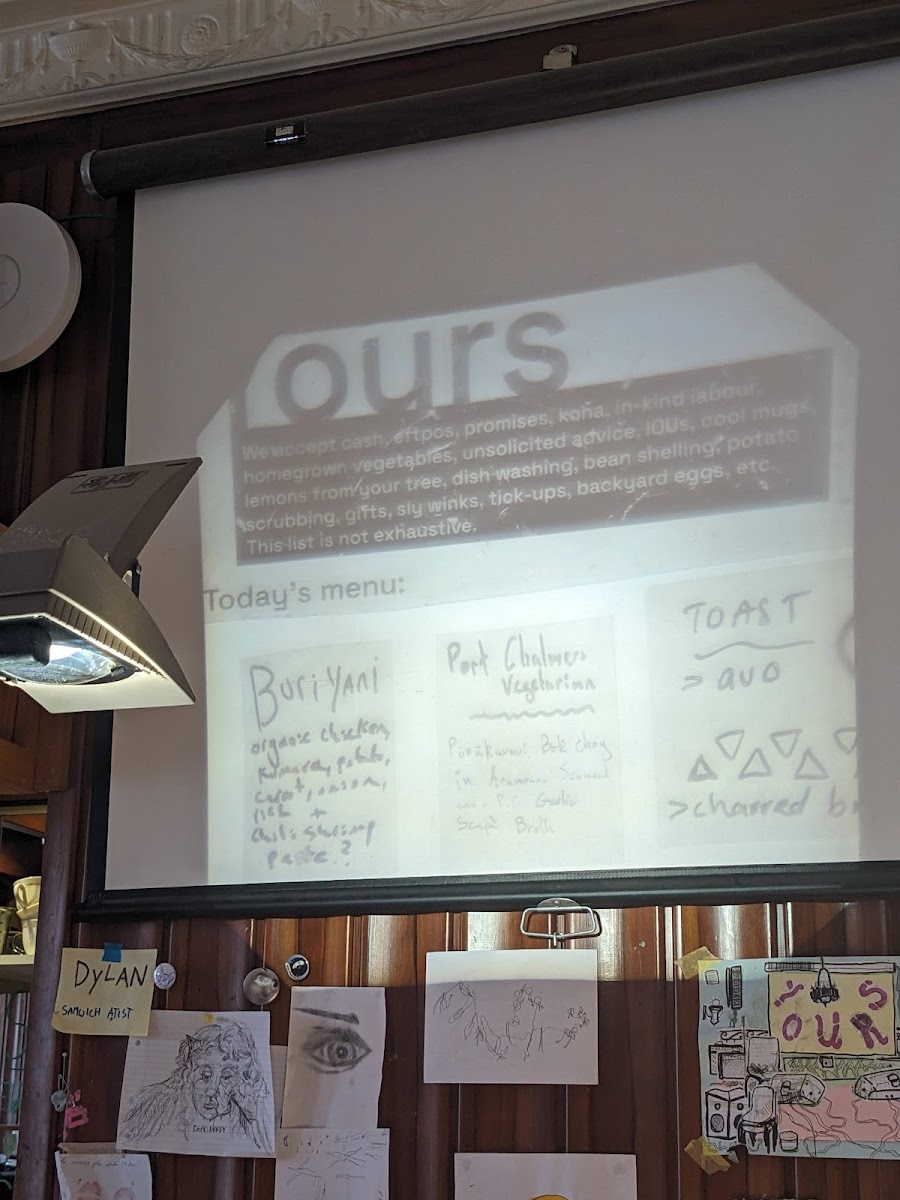 ours
We accept cash, eftpos, promises, koha, in-kind labour,
homegrown vegetables, unsolicited advice, IOUs, cool mugs,
lemons from your tree, dish washing, bean shelling, potato
scrubbing, gifts, sly winks, tick-ups, backyard eggs, etc.
This list is not exhaustive.
Today's menu:
Buriyani
organic chicken,
potato,
carot, onion,
rice +
chili shrimp
paste?
Port Chalmers
Vegetarian
Pūrākaunui Bok choy
in Aramoana Seaweed
P.C. Garlic
Broth
TOAST
> avo
> charred
DYLAN
SAMWICH ATIST
OURS